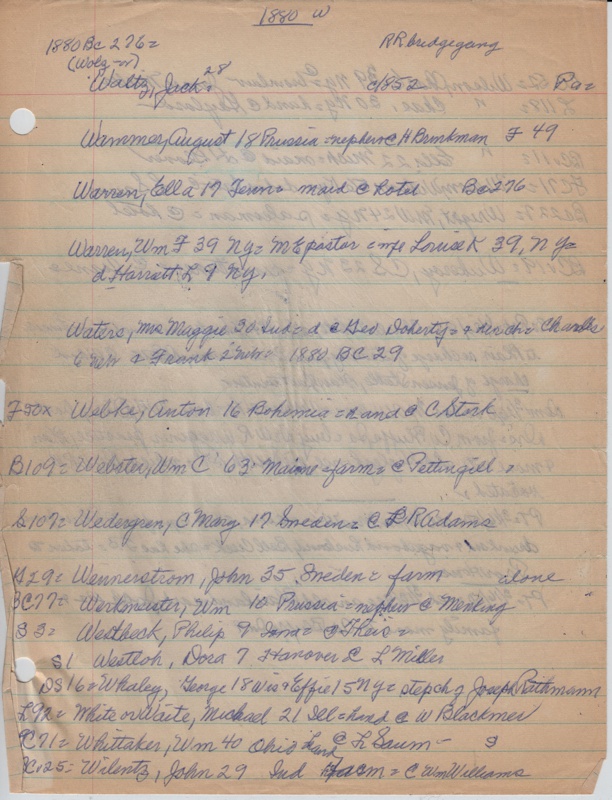 1880 W
1880 BC 276= RR bridgegang
(Wolz-n)
Waltz, Jack= 28 c/852 Pa=
Wammer, August 18 Prussia=nephew c H Brinkman F 49
Warren, Ella 17 Tenn= maid c hotel Bc276
Warren, Wm F 39 NY= ME pastor = wife Louise K 39, NY=
d Harriett L 9 NY.
Waters, Mrs Maggie 30 Ind=d c Geo Doherty= & her ch= Charles
6 Neb & Frank 2 Neb= 1880 BC 29
Webke, Anton 16 Bohemia= hand c C Stork
B109= Webster, Wm C 63 Maine=farm= c Pettingill=
S107= Wedergren, C Mary 17 Sweden= C R Adams
29= Wennerstrom, John 35, Sweden= farm alone
BC77= Werkmeister, Wm 10 Prussia=nephew c Menting
S 3= Westbeck, Philip 9 Iowa= c Theis=
S1 Westloh, Dora 7 Hanover C L Miller
DS16=Whaley, George 18 Wis & Effie 15 NY= stepch of Joseph Rathmann
L92= White or Waite, Michael 21 Ill=hand c W Blackmer
C71= Whittaker, Wm 40 Ohio hand c Saum- S
25= Wilentz, John 29 Ind Farm= C Wm Williams